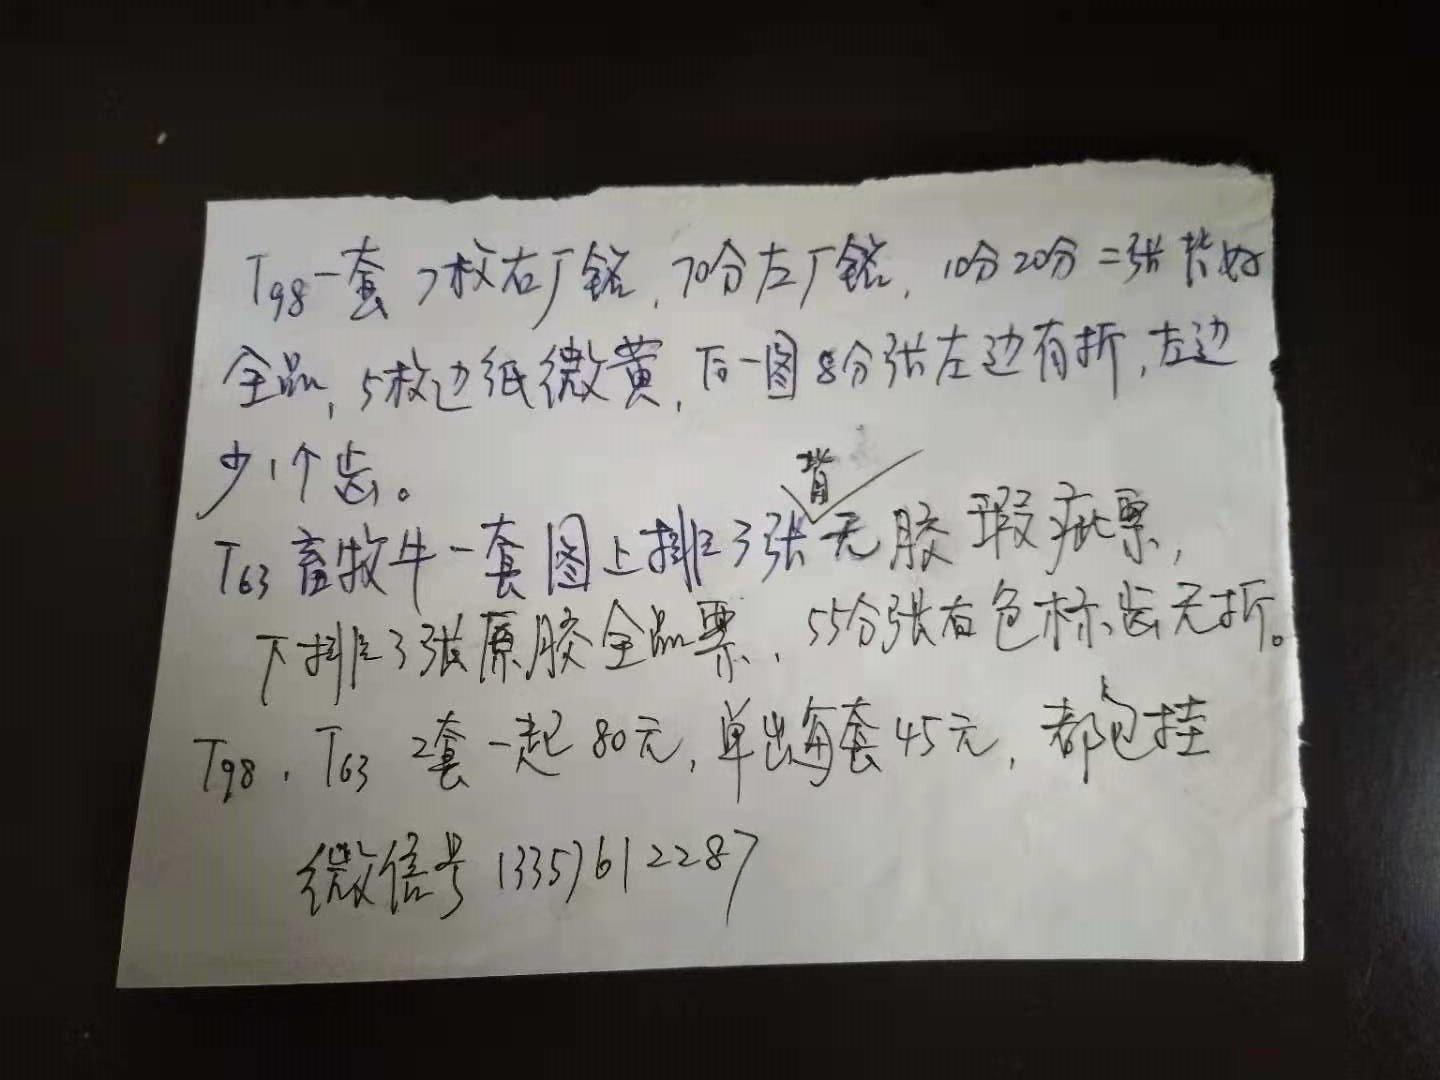 T98一套 7枚右厂铭，70分左厂铭，10分20分二张背好
全品，5枚边纸微黄，后一图8分张左边有折，左边
少1个齿。
T63畜牧牛一套图上排3张背无胶瑕疵票，
下排3张原胶全品票，55分张右色标齿无折。
T98．T63 2套一起80元，单出每套45元，都包挂
微信号13357612287